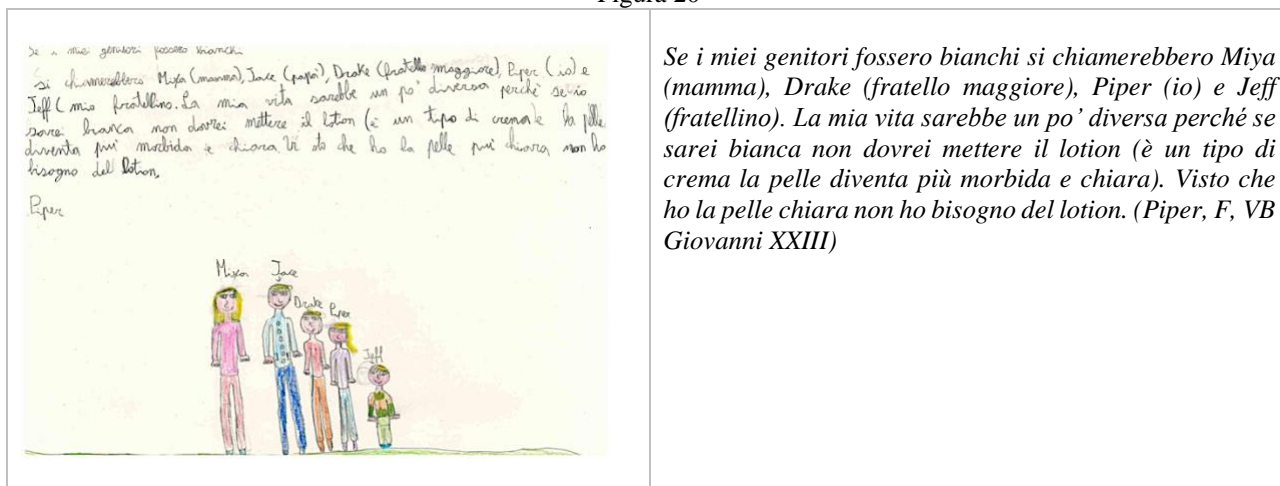 Se i miei genitori fossero bianchi
si chiamerebbero Mixa (mamma), Jace (papà), Drake (fratello maggiore), Piper (io) e
Jeff ( mio fratellino. La mia vita sarebbe un po' diversa perché se io
sarei bianca non dovrei mettere il loton (è un tipo di crema le la pelle
diventa più morbida e chiara. Vi sto che ho la pelle più chiara non ho
bisogno del lotion,
Piper
Mixa Jace
Drake Piper
Jeff
Se i miei genitori fossero bianchi si chiamerebbero Miya
(mamma), Drake (fratello maggiore), Piper (io) e Jeff
(fratellino). La mia vita sarebbe un po' diversa perché se
sarei bianca non dovrei mettere il lotion (è un tipo di
crema la pelle diventa più morbida e chiara). Visto che
ho la pelle chiara non ho bisogno del lotion. (Piper, F, VB
Giovanni XXIII)